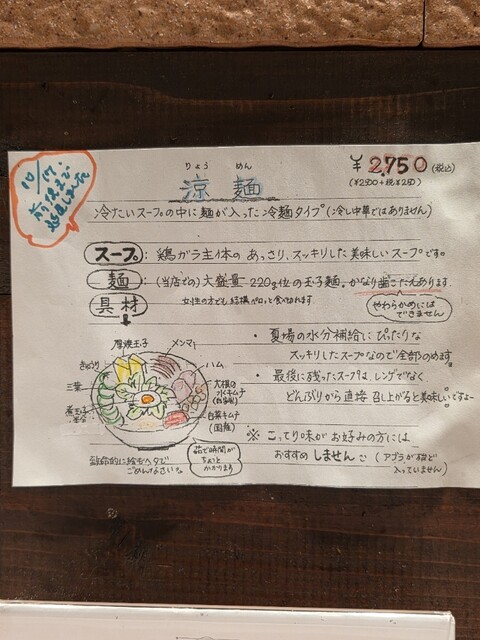 10/17
前後まで
りょう めん
涼 麺
¥2,750(税込)
(¥2500+税¥250)
冷たいスープの中に麺が入った冷麺タイプ(冷し中華ではありません)
スープ：鶏ガラ主体のあっさり、スッキリした美味しいスープです。
麺：(当店での)大盛量220g位の玉子麺。かなり歯ごたえあります
女性の方でも結構ペロッと食べられます
やわらかめには
できません
具材
厚焼玉子
メンマ
きゅうり
ハム
三葉
大根の
水キムチ
(自家製)
煮玉子
白菜キムチ
(国産)
茹で時間が
ちょっと
かかります
致命的に絵もヘタで
ごめんなさい
・夏場の水分補給にぴったりな
スッキリしたスープなので全部のめます
・最後に残ったスープは、レンゲでなく
どんぶりから直接召し上がると美味しいですよー
※こってり味がお好みの方には
おすすめしません(アブラが殆ど
入っていません)